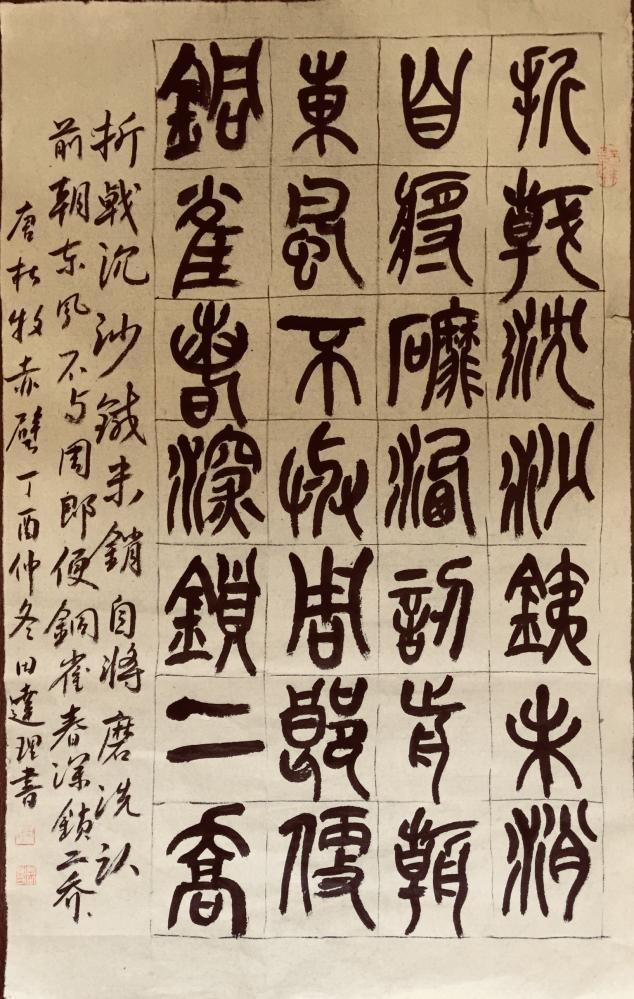 折戟沈沙銕未消
自將磨洗認前朝
東風不與周郎便
銅雀春深鎖二喬
折戟沉沙鐵未銷自將磨洗认
前朝东风不与周郎便銅雀春深鎖二乔
唐杜牧赤壁丁酉仲冬田達理書